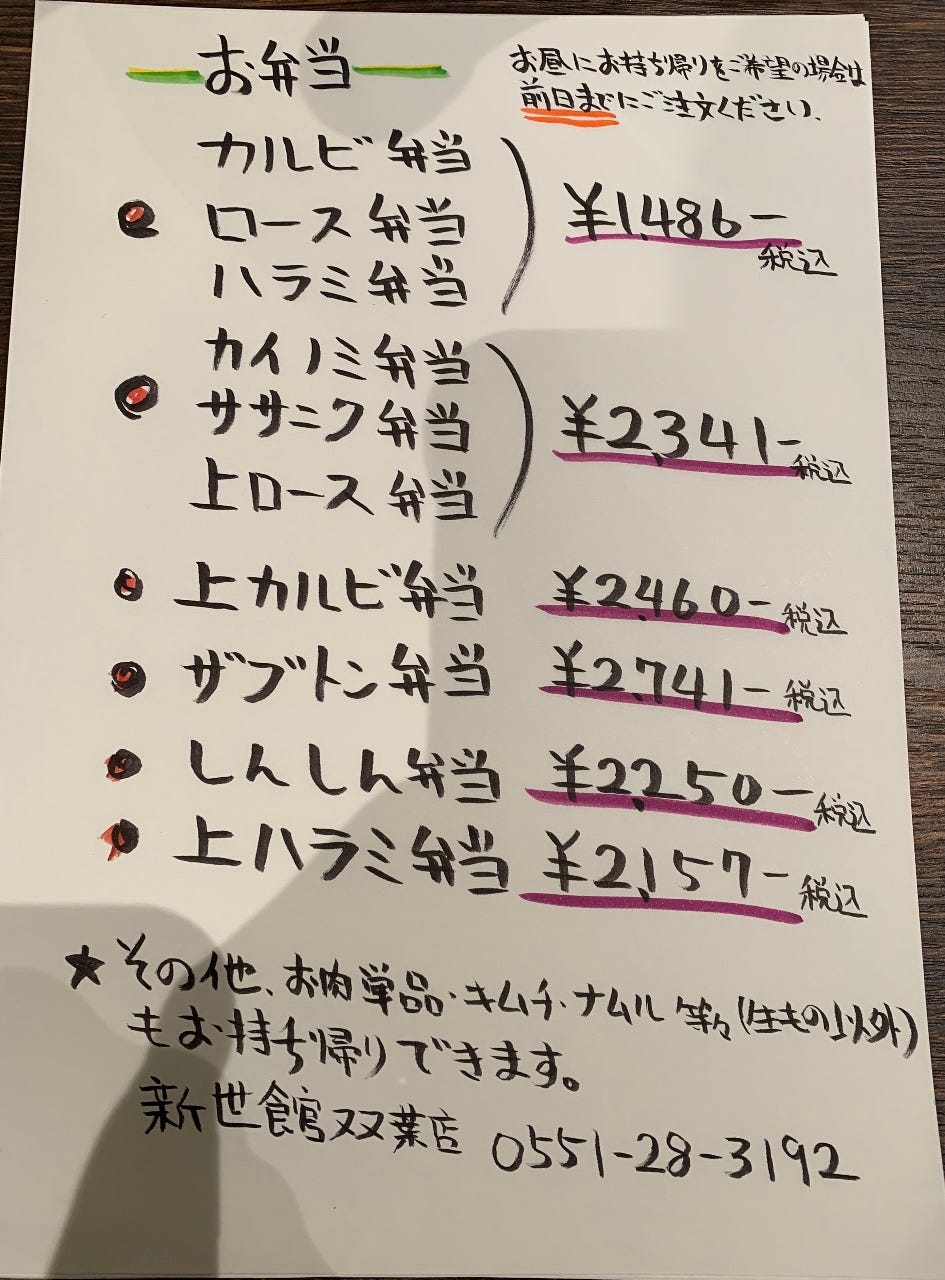 お弁当
お昼にお持ち帰りをご希望の場合は
前日までにご注文ください.
カルビ弁当
ロース弁当
ハラミ弁当
¥1,486-
税込
カイノミ弁当
ササニク弁当
上ロース弁当
¥2,341-
税込
上カルビ弁当 ¥2,460-税込
ザブトン弁当 ¥2,741-税込
しんしん弁当 ¥2,250-税込
上ハラミ弁当 ¥2,157-税込
★その他、お肉単品・キムチ・ナムル等々(生もの以外)
もお持ち帰りできます。
新世館双葉店 0551-28-3192